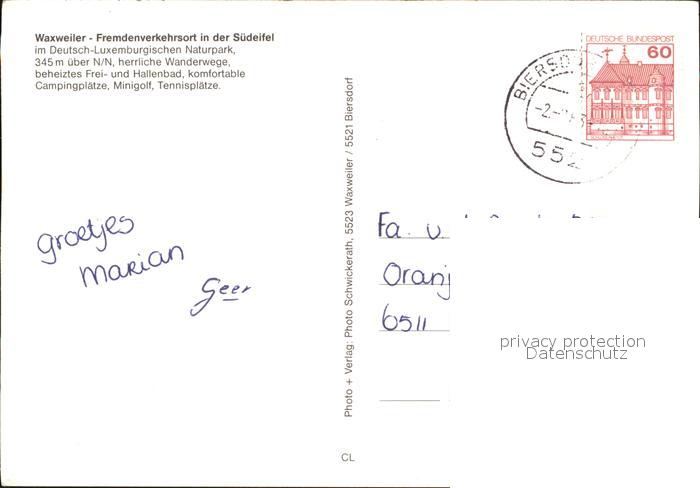 Waxweiler - Fremdenverkehrsort in der Südeifel
im Deutsch-Luxemburgischen Naturpark,
345 m über N/N, herrliche Wanderwege,
beheiztes Frei- und Hallenbad, komfortable
Campingplätze, Minigolf, Tennisplätze.
groetjes
Marian
Geer
Photo + Verlag: Photo Schwickerath, 5523 Waxweiler / 5521 Biersdorf
CL
DEUTSCHE BUNDESPOST
60
BIERSD
552
Fa. v.
Oranj
6511
privacy protection
Datenschutz